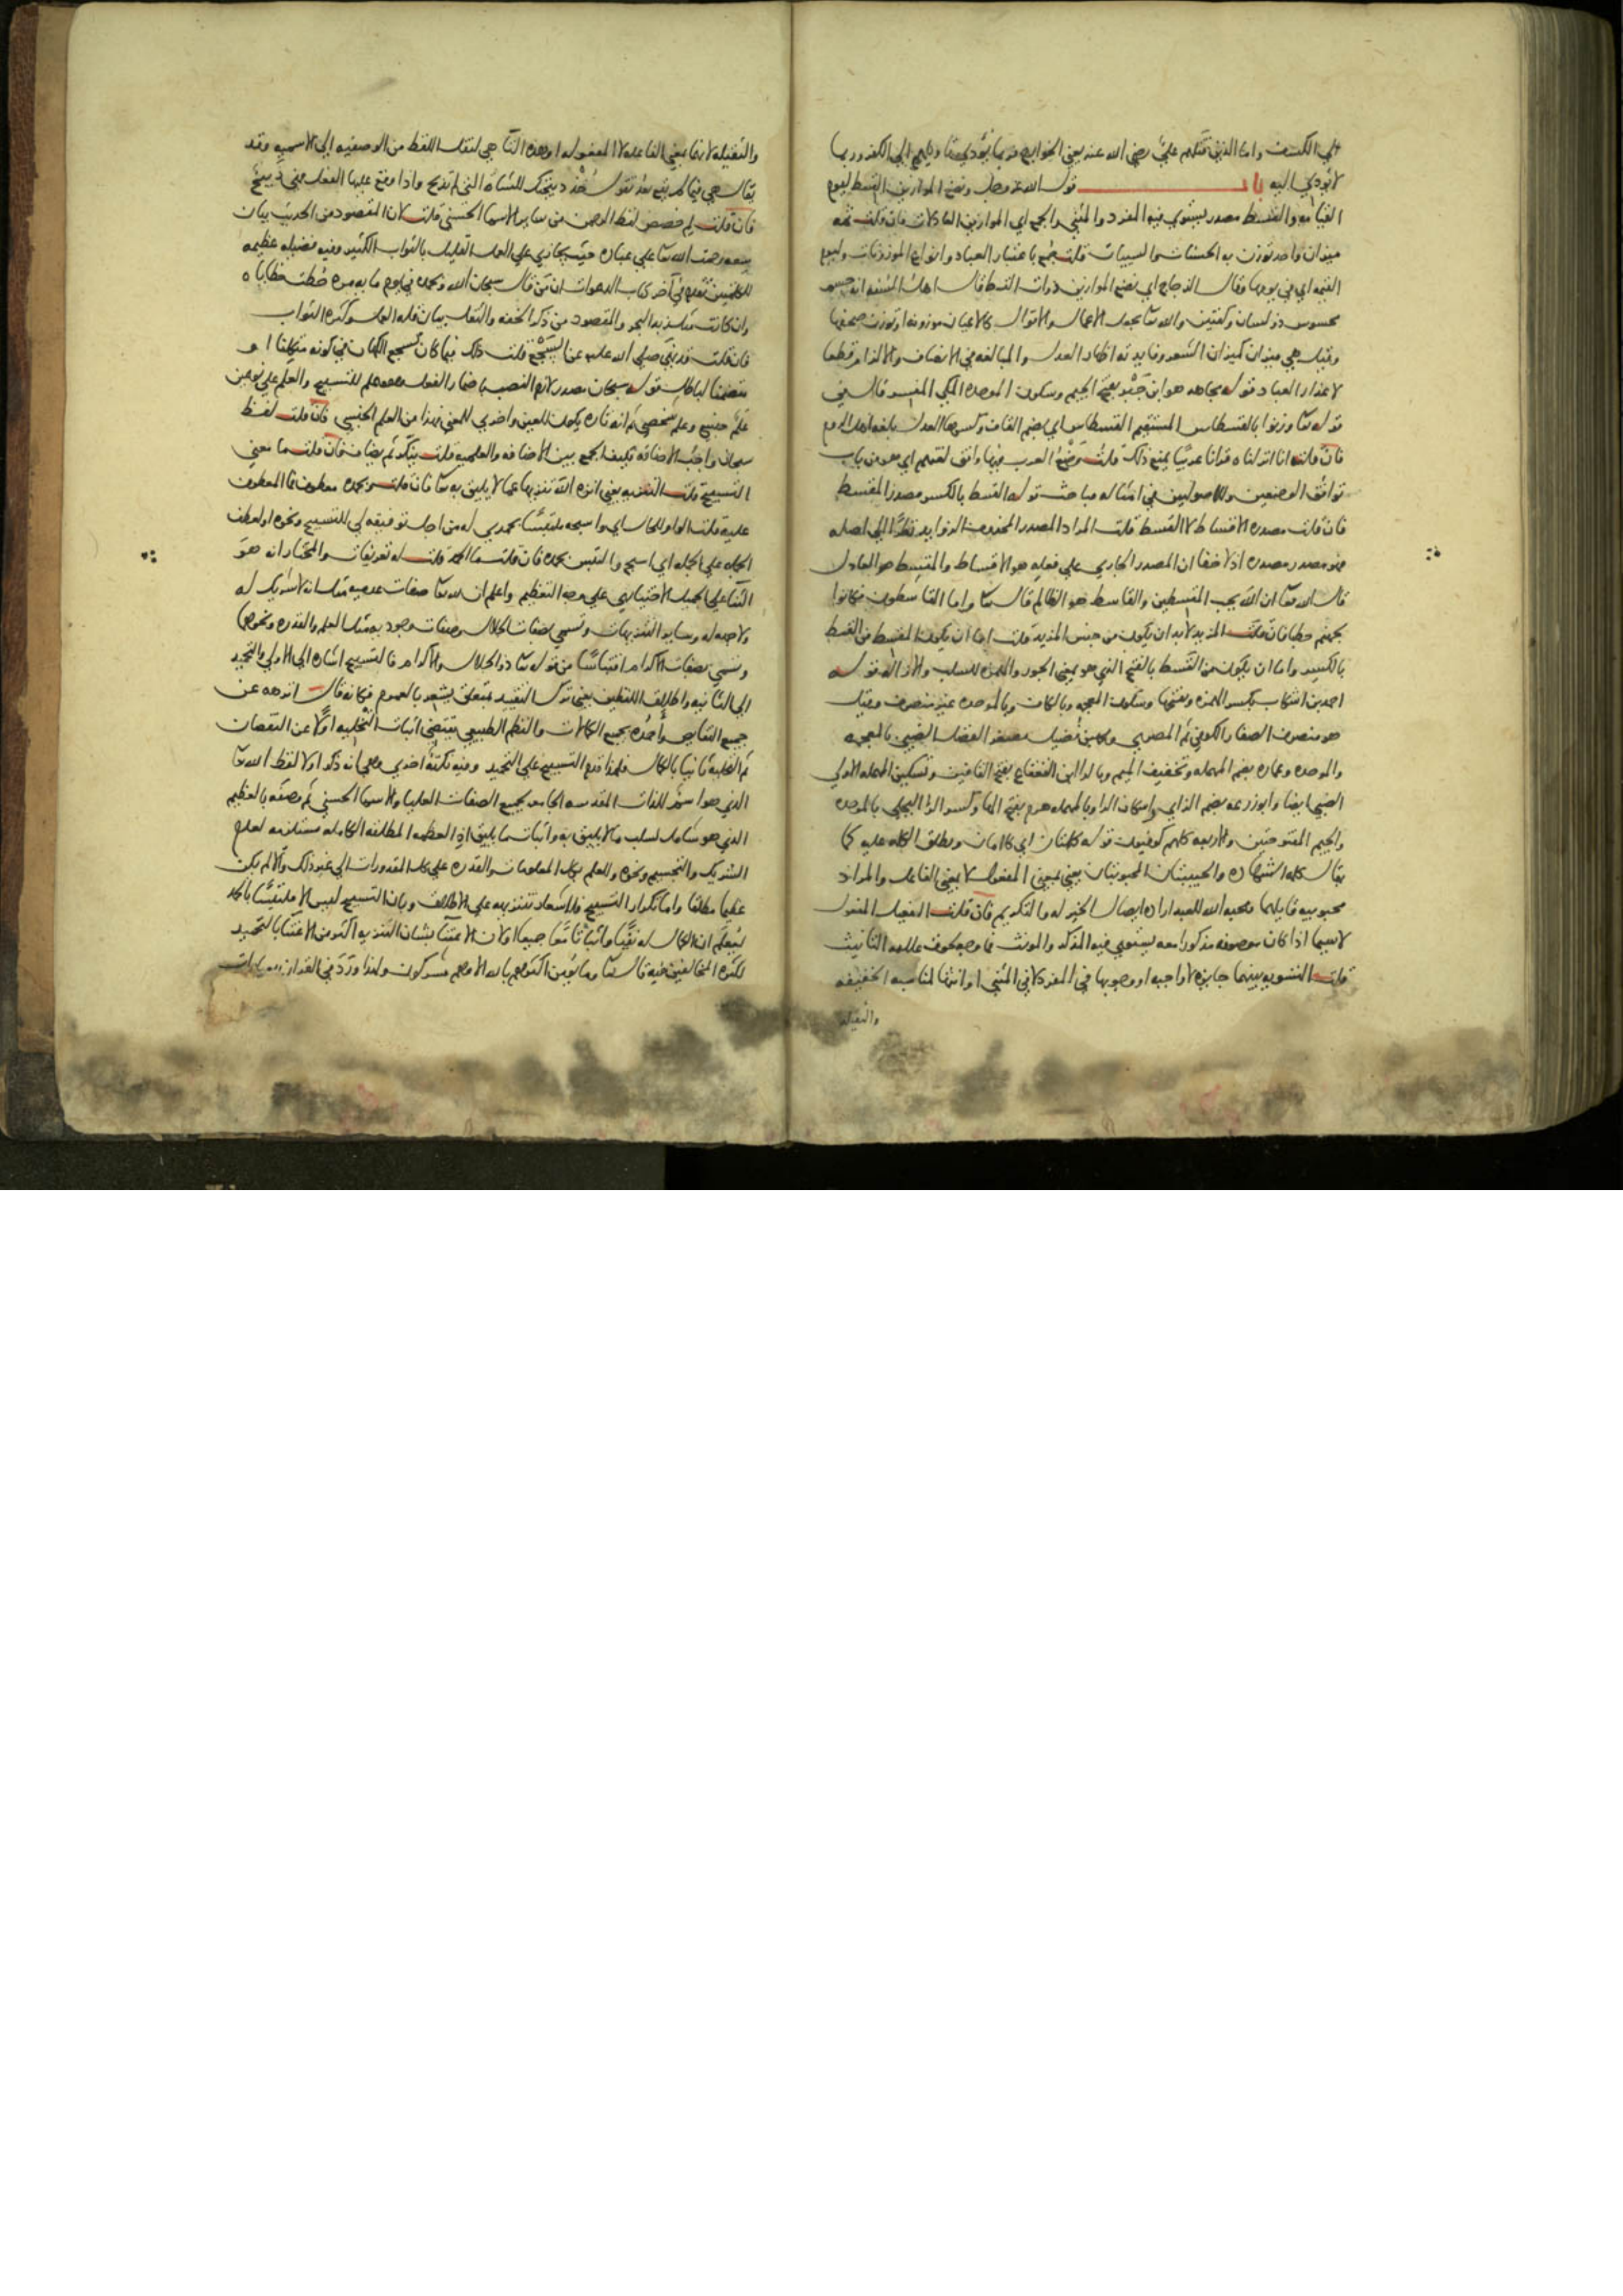 الى الكفر واما الذين قتلهم علي رضي الله عنه يعني الخوارج فربما يؤدي تأويلهم الى الكفر وربما
لا يؤدي اليه باب قول الله عز وجل ونضع الموازين القسط ليوم
القيامه والقسط مصدر يستوي فيه المفرد والمثنى والجمع اي الموازين العادلات فان قلت ثمه
ميزان واحد يوزن به الحسنات والسيئات قلت جمع باعتبار العباد وانواع الموزونات وليوم
القيمه اي في يومها وقال الزجاج اي نضع الموازين ذوات القسط قال اهل السنه انه جسم
محسوس ذو لسان وكفتين والله تعا يجعل الاعمال والاقوال كالاعيان موزونه او توزن صحفها
وقيل هي ميزان كميزان الشعر وفايدته اظهار العدل والمبالغه في الانصاف والالزام قطعا
لاعذار العباد قوله مجاهد هو ابن جبر بفتح الجيم وسكون الموحده المكي المفسر قال في
قوله تعا وزنوا بالقسطاس المستقيم القسطاس اي بضم القاف وكسرها العدل بلغه اهل الروم
فان قلت انا انزلناه قرانا عربيا يمنع ذلك قلت وضع العرب فيها وافق لغتهم اي هو من باب
توافق الوضعين وللاصوليين في امثاله مباحث قوله القسط بالكسر مصدر المقسط
فان قلت مصدره الاقساط لا القسط قلت المراد المصدر المحذوف الزوايد نظرا الى اصله
فهو مصدر مصدره اذ لا خفا ان المصدر الجاري على فعله هو الاقساط والمقسط هو العادل
قال الله تعا ان الله يحب المقسطين والقاسط هو الظالم قال تعا واما القاسطون فكانوا
لجهنم حطبا فان قلت المزيد لابد ان يكون من جنس المزيد قلت اما ان يكون المقسط من القسط
بالكسر واما ان يكون من القسط بالفتح الذي هو بمعنى الجور والهمزه للسلب والازاله قوله
احمد بن اشكاب بكسر الهمزه وفتحها وسكون المعجمه وبالكاف وبالموحده غير منصرف وقيل
هو منصرف الصفار الكوفي ثم المصري ومحمد بن فضيل مصغر الفضل الضبي بالمعجمه
والموحده وعماره بضم المهمله وتخفيف الميم وبالراء ابن القعقاع بفتح القافين وتسكين المهمله الاولى
الضبي ايضا وابو زرعه بضم الزاي واسكان الراء وبالمهمله هرم بفتح الهاء وكسر الراء البجلي بالموحده
والجيم المفتوحتين والاربعه كلهم كوفيون قوله كلمتان اي كلامان ويطلق الكلمه عليه كما
يقال كلمه الشهاده والحبيبتان المحبوبتان يعني بمعنى المفعول لا بمعنى الفاعل والمراد
محبوبيه قايلهما ومحبه الله للعبد اراده ايصال الخير له والتكريم فان قلت الفعيل المفعول
لا سيما اذا كان موصوفه مذكورا معه يستوي فيه المذكر والمونث فما وجه لحوق علامه التانيث
قلت التسويه بينهما جايزه لا واجبه او وجوبها في المفرد لا في المثنى او انثها لمناسبه الخفيفه
والثقيله
والثقيله لانها بمعنى الفاعله لا المفعوله او هذه التا هي لنقل اللفظ من الوصفيه الى الاسميه وقد
يقال هي فيما لم يقع بعد تقول خذ ذبيحتك للشاه التي لم تذبح واذا وقع عليها الفعل فهي ذبيح
فان قلت لم خصص لفظ الرحمن من ساير الاسما الحسنى قلت لان المقصود من الحديث بيان
سعه رحمت الله تعا على عباده حيث يجازي على العمل القليل بالثواب الكثير وفيه فضيله عظيمه
للكلمتين تقدم في آخر كتاب الدعوات ان من قال سبحان الله وبحمده في يوم مايه مره حطت خطاياه
وان كانت مثل زبد البحر والمقصود من ذكر الخفه والثقل بيان قله العمل وكثره الثواب
فان قلت قد نهى صلى الله عليه عن السجع قلت ذلك فيما كان كسجع الكهان في كونه متكلفا او
متضمنا لباطل قوله سبحان مصدر لازم النصب باضمار الفعل وهو علم للتسبيح والعلم على نوعين
علم جنسي وعلم شخصي ثم انه تاره يكون للعين واخرى للمعنى فهذا من العلم الجنسي فان قلت لفظ
سبحان واجب الاضافه فكيف الجمع بين الاضافه والعلميه قلت ينكر ثم يضاف فان قلت ما معنى
التسبيح قلت التنزيه يعني انزه الله تنزيها عما لا يليق به تعا فان قلت وبحمده معطوف فما المعطوف
عليه قلت الواو للحال اي واسبحه ملتبسا بحمدي له من اجل توفيقه لي للتسبيح ونحوه او لعطف
الجمله على الجمله اي اسبح والتبس بحمده فان قلت ما الحمد قلت له تعريفات والمختار انه هو
الثنا على الجميل الاختياري على وجه التعظيم واعلم ان لله تعا صفات عدميه مثل انه لا شريك له
ولا جهه له وساير التنزيهات وتسمى بصفات الجلال وصفات وجوديه مثل العلم والقدره ونحوهما
وتسمى بصفات الاكرام اقتباسا من قوله تعا ذو الجلال والاكرام فالتسبيح اشاره الى الاولى والتحميد
الى الثانيه واطلاق اللفظين يعني ترك التقييد بمتعلق يشعر بالعموم فكانه قال انزهه عن
جميع النقايص واحمده بجميع الكمالات والنظم الطبيعي يقتضي اثبات التخليه اولا عن النقصان
ثم التحليه ثانيا بالكمال فلهذا قدم التسبيح على التحميد وفيه نكته اخرى وهي انه ذكر اولا لفظ الله تعا
الذي هو اسم للذات المقدسه الجامعه بجميع الصفات العليا والاسما الحسنى ثم وصفه بالعظيم
الذي هو شامل لسلب ما لا يليق به واثبات ما يليق اذ العظمه المطلقه الكامله مستلزمه لعدم
الشريك والتجسيم ونحوه وللعلم بكل المعلومات والقدره على كل المقدورات الى غير ذلك والا لم يكن
عظيما مطلقا واما تكرار التسبيح فللاشعار بتنزيهه على الاطلاق وبان التسبيح ليس الا ملتبسا بالحمد
ليعلم ان الكمال له نفيا واثباتا معا جميعا او لان الاعتنا بشان التنزيه اكثر من الاعتنا بالتحميد
لكثره المخالفين فيه قال تعا وما يومن اكثرهم بالله الا وهم مشركون ولهذا ورد في القران بعبارات